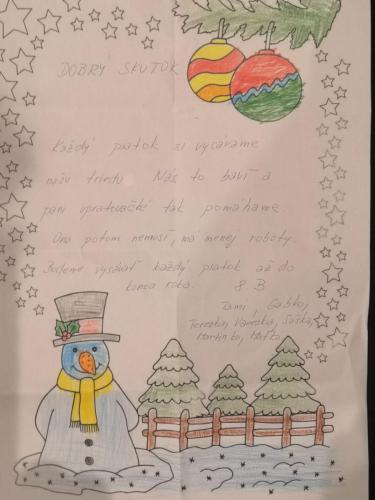 DOBRÝ SKUTOK
Každý piatok si vysávame
našu triedu. Nás to baví a
pani upratovačke tak pomáhame.
Ona potom nemusí, má menej roboty.
Budeme vysávať každý piatok až do
konca roka. 8 B
Tami, Gabko,
Terezka, Vaneska, Saška,
Martinko, Maťko